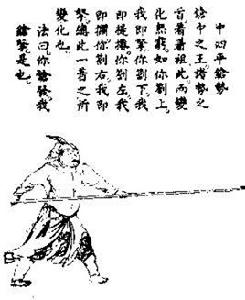 中四平鎗勢
鎗中之王諸勢之
首着着祖此而變
化無窮如你劄上
我即拏你劄下我
即提你劄左我
即攔你劄右我即
拏總此一着之所
變化也
法曰你鎗發我
鎗拏是也